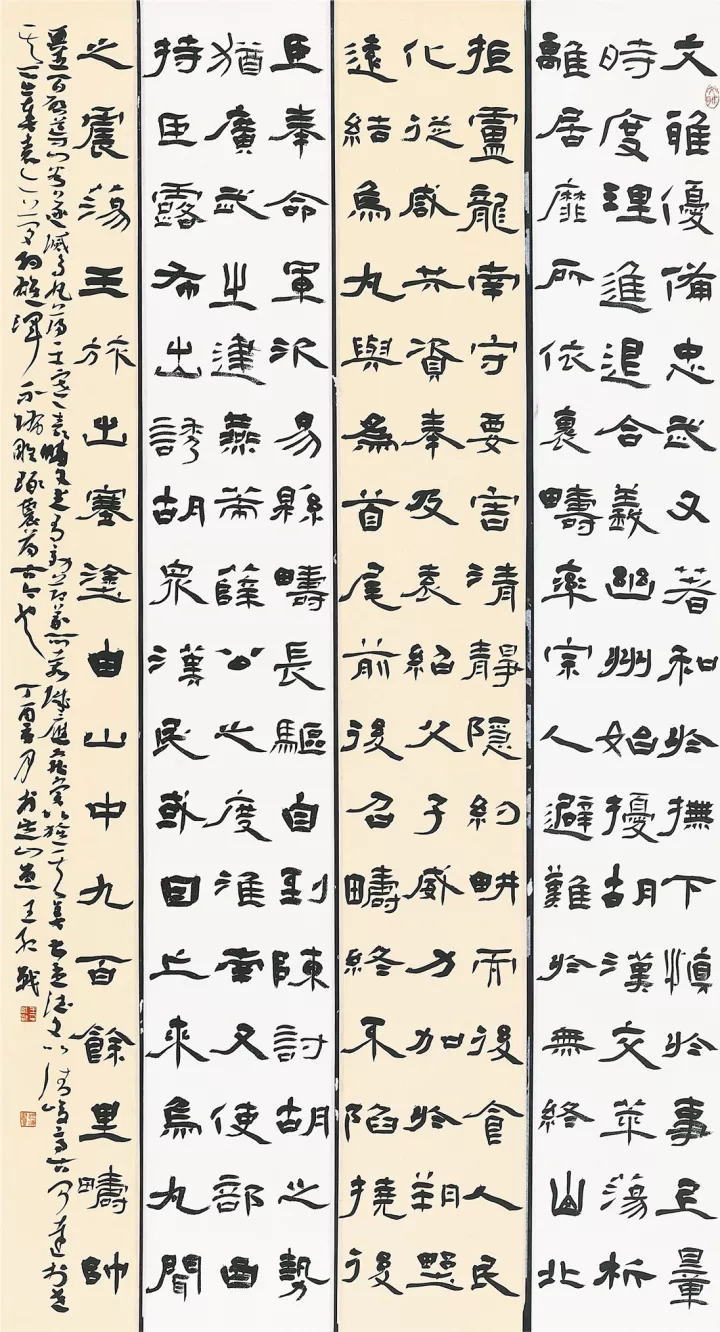 文雅優備忠武又著和於撫下慎於事上量
時度理進退合義幽州始擾胡漢交萃蕩析
離居靡所依褱疇率宗人避難於無終山北
拒盧龍南守要害清靜隱約耕而後食人民
化從咸共資奉及袁紹父子威力加於朔野
遠結烏丸與為首尾前後召疇終不陷撓後
臣奉命軍次易縣疇長驅自到陳討胡之勢
猶廣武之建燕策薛公之度淮南又使部曲
持臣露布出誘胡眾漢民或因亡來烏丸聞
之震蕩王旅出塞塗由山中九百餘里疇帥
兵五百啟導山谷遂滅烏丸蕩平塞表疇文武有效節義可嘉誠應寵賞以旌其美
雄渾不 雕琢 古今也 丁酉 月